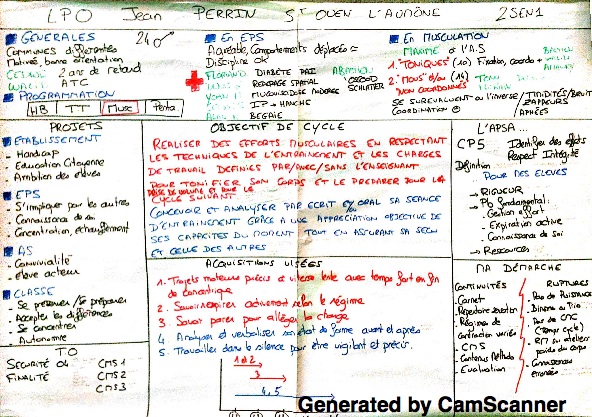 LPO Jean PERRIN St OUEN L'AUMÔNE 2SEN1
GENERALES
24 ♂
Communes différentes
Motivés, bonne orientation
2 ans de retard
ATC
PROGRAMMATION
HB TT Musc Penta.
En EPS
Agréable, Comportements déplacés =
Discipline ok
DIABÈTE PAI
REPÉRAGE SPATIAL
MUCOVISCIDOSE
OSGOOD
SCHLATTER
IP → HANCHE
BEGAIE
En MUSCULATION
à l'A.S
1. "TONIQUES" (10) Fixation, coord +
2. "MOUS" et/ou (14)
"NON COORDONNÉS"
SE SURÉVALUENT ou l'inverse / TIMIDITÉS / BRUIT
COORDINATION
RAPPEURS
APNÉES
PROJETS
ETABLISSEMENT
- Handicap
- Education Citoyenne
- Ambition des élèves
EPS
- S'impliquer pour les autres
- Connaissance de soi
- Concentration, échauffement
AS
- Convivialité
- élève acteur
CLASSE
- Se présenter / Se préparer
- Accepter les différences
- Se concentrer
Autonomie
TO
SECURITÉ O4 CMS1
FINALITÉ CMS2
CMS3
OBJECTIF DE CYCLE
RÉALISER DES EFFORTS MUSCULAIRES EN RESPECTANT
LES TECHNIQUES DE L'ENTRAINEMENT ET LES CHARGES
DE TRAVAIL DÉFINIES PAR/AVEC/SANS L'ENSEIGNANT
POUR TONIFIER SON CORPS ET LE PRÉPARER POUR LE
PRISE DE VOLUME ET POUR LE
CYCLE SUIVANT
CONCEVOIR ET ANALYSER PAR ECRIT ET/OU ORAL SA SEANCE
D'ENTRAINEMENT GRÂCE A UNE APPRÉCIATION OBJECTIVE DE
SES CAPACITÉS DU MOMENT TOUT EN ASSURANT SA SECU
ET CELLE DES AUTRES
ACQUISITIONS VISÉES
1. Trajets moteurs précis à vitesse lente avec temps fort en fin
de concentrique
2. Savoir respirer activement selon le régime
3. Savoir parer pour alléger la charge
4 Analyser et verbaliser son état de forme avant et après
5. Travailler dans le silence pour être vigilant et précis.
1 à 2
3
4, 5
L'APSA...
CP5 Identifier des effets
Respect Intégrité
Définition
POUR DES ELEVES
→ RIGUEUR
→ Pb fondamental:
- Gestion effort
- Expiration active
- Connaissance de soi
→ Ressources
MA DÉMARCHE
CONTINUITÉS
- Carnet
- Répertoire
- Régimes de
contraction variés
- CMS
- Contenus Méthodo
- Evaluation
RUPTURES
- Pas de Puissance
- Binôme ou Trio
- Pas de CMC
(Temps cycle)
- RM sur atelier
poids du corps
- Connaissances
erronées
Generated by CamScanner